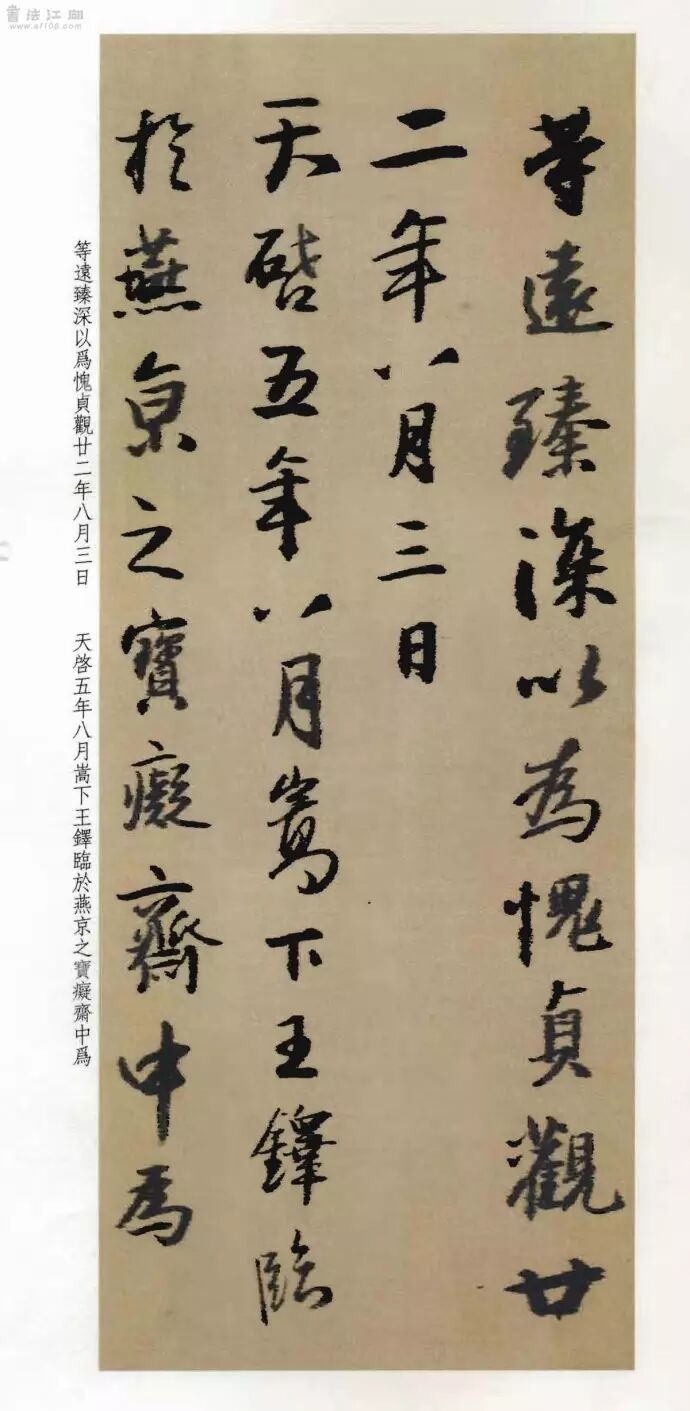 書法江湖
www.sf108.com
等遠臻深以為愧貞觀廿
二年八月三日
天啓五年八月嵩下王鐸臨
於燕京之寶癡齋中為
等遠臻深以爲愧貞觀廿二年八月三日　天啓五年八月嵩下王鐸臨於燕京之寶癡齋中爲